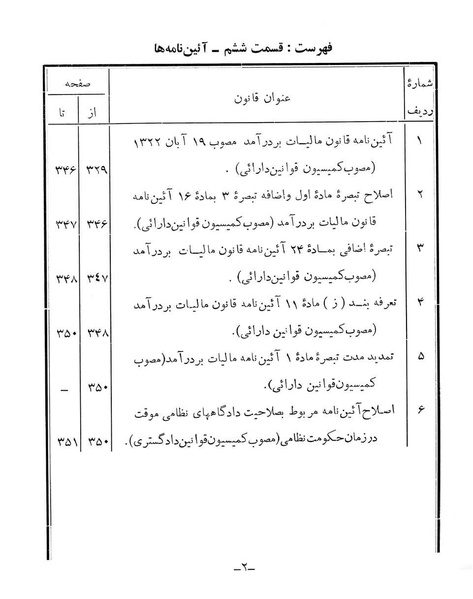 فهرست : قسمت ششم ـ آئین‌نامه‌ها
شمارهٔ ردیف	عنوان قانون	صفحه
از	تا
۱	آئین‌نامه قانون مالیات بردرآمد مصوب ۱۹ آبان ۱۳۲۲
(مصوب کمیسیون قوانین دارائی) .	۳۲۹	۳۴۶
۲	اصلاح تبصرهٔ مادهٔ اول واضافه تبصرهٔ ۳ بمادهٔ ۱۶ آئین‌نامه
قانون مالیات بردرآمد (مصوب کمیسیون قوانین دارائی).	۳۴۶	۳۴۷
۳	تبصرهٔ اضافی بمادهٔ ۲۴ آئین‌نامه قانون مالیات بردرآمد
(مصوب کمیسیون قوانین دارائی) .	۳۴۷	۳۴۸
۴	تعرفه بند ( ز ) مادهٔ ۱۱ آئین‌نامه قانون مالیات بردرآمد
(مصوب کمیسیون قوانین دارائی).	۳۴۸	۳۵۰
۵	تمدید مدت تبصرهٔ مادهٔ ۱ آئین‌نامه مالیات بردرآمد(مصوب
کمیسیون قوانین دارائی).	۳۵۰	ـ
۶	اصلاح آئین‌نامه مربوط بصلاحیت دادگاههای نظامی موقت
درزمان حکومت نظامی(مصوب کمیسیون قوانین دادگستری).	۳۵۰	۳۵۱
ـ۲ـ